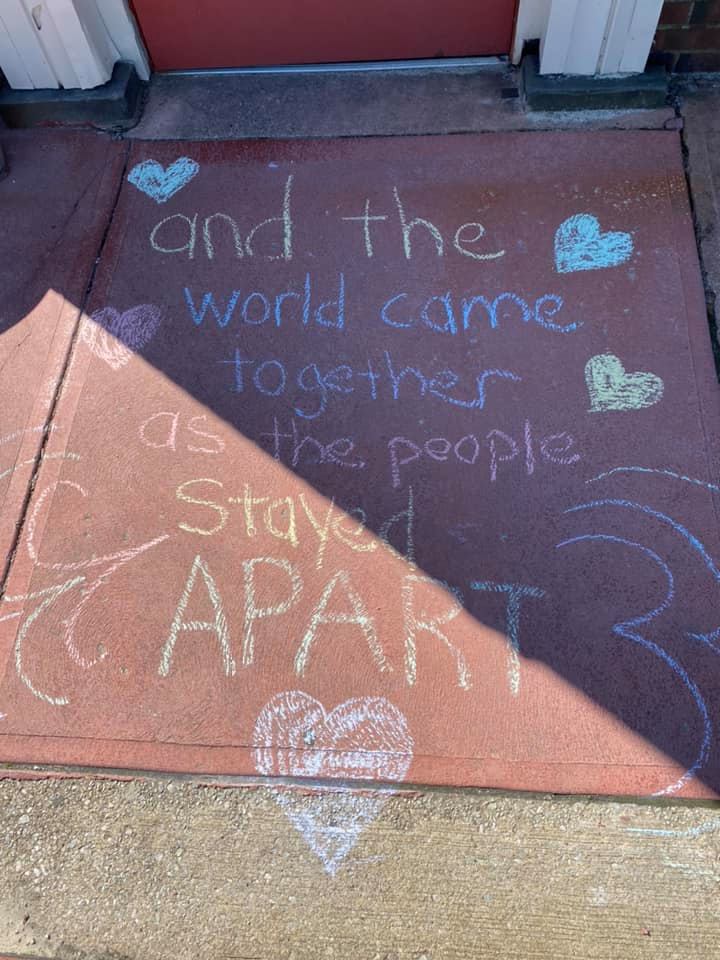 and the
world came
together
as the people
Stayed
APART